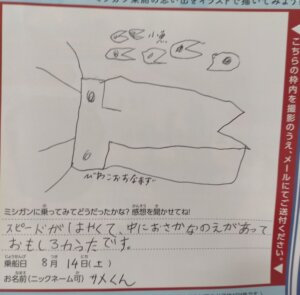 ミシガン乗船の思い出をイラストで描いてみよう
小魚
びわこおおなまず
ミシガンに乗ってみてどうだったかな?感想を聞かせてね!
スピードがはやくて、中におさかなのえがあって
おもしろかったです。
乗船日 8月14日(土)
お名前(ニックネーム可) サメくん
こちらの枠内を撮影のうえ、メールにてご送付ください。